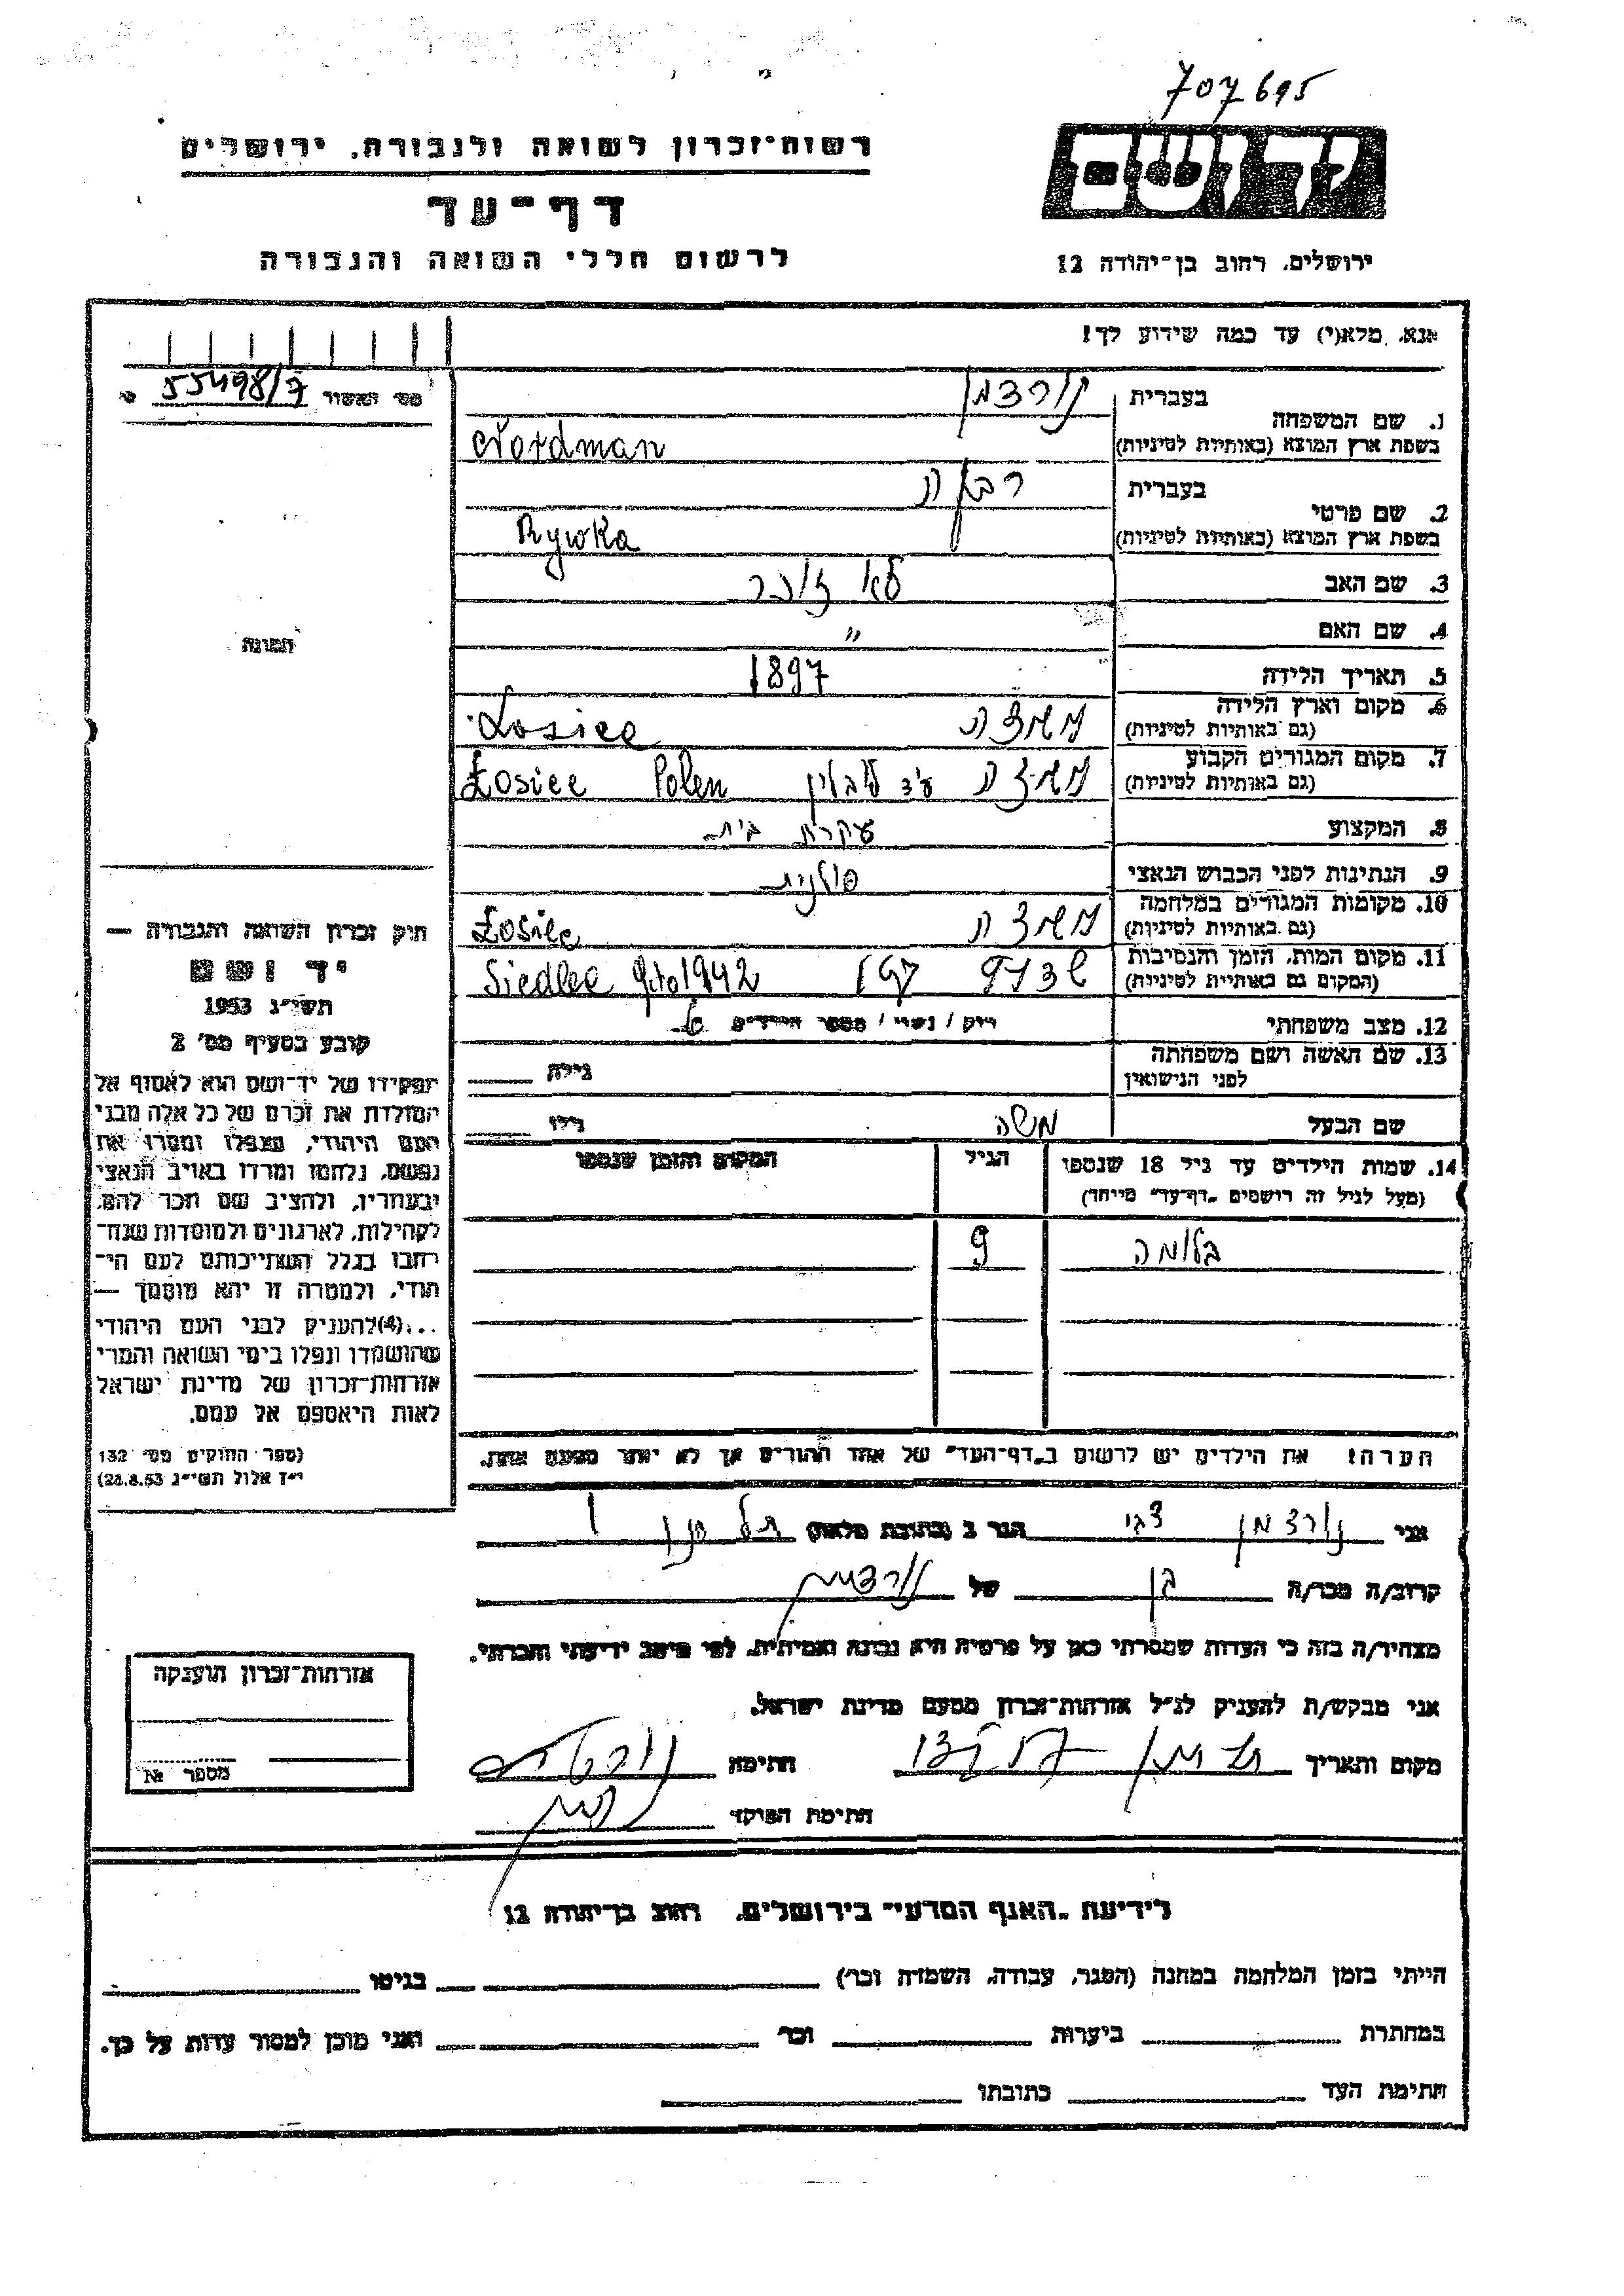 707695
רשות־זכרון לשואה ולגבורה. ירושלים
דף־עד
לרשום חללי השואה והגבורה
יד ושם
ירושלים. רחוב בן־יהודה 12
אנא. מלא(י) עד כמה שידוע לך!
מס׳ האשור 55498/7
1. שם המשפחה
בעברית נורדמן
בשפת ארץ המוצא (באותיות לטיניות) Nordman
2. שם פרטי
בעברית רבקה
בשפת ארץ המוצא (באותיות לטיניות) Rywka
3. שם האב לא זוכר
4. שם האם "
5. תאריך הלידה 1897
6. מקום וארץ הלידה
(גם באותיות לטיניות) Łosice
7. מקום המגורים הקבוע
(גם באותיות לטיניות) ע״י לובלין Polen Łosice
8. המקצוע עקרת בית
9. הנתינות לפני הכבוש הנאצי פולנית
10. מקומות המגורים במלחמה
(גם באותיות לטיניות) Łosice
11. מקום המות, הזמן והנסיבות
(המקום גם באותיות לטיניות) Siedlce 1942
12. מצב משפחתי רוק / נשוי / מספר הילדים
13. שם האשה ושם משפחתה
לפני הנישואין גילה
שם הבעל משה גילו
14. שמות הילדים עד גיל 18 שנספו הגיל המקום והזמן שנספו
(מעל לגיל זה רושמים „דף־עד״ מיוחד)
בלומה 9
הערה! את הילדים יש לרשום ב„דף־העד״ של אחד ההורים אך לא יותר מפעם אחת.
תמונה
חוק זכרון השואה והגבורה —
יד ושם
תשי״ג 1953
קובע בסעיף מס׳ 2
תפקידו של יד־ושם הוא לאסוף אל
המולדת את זכרם של כל אלה מבני
העם היהודי, שנפלו ומסרו את
נפשם, נלחמו ומרדו באויב הנאצי
ובעוזריו, ולהציב שם וזכר להם,
לקהילות, לארגונים ולמוסדות שנח־
רבו בגלל השתייכותם לעם הי־
הודי, ולמטרה זו יהא מוסמך —
...(4)להעניק לבני העם היהודי
שהושמדו ונפלו בימי השואה והמרי
אזרחות־זכרון של מדינת ישראל
לאות היאספם אל עמם.
(ספר החוקים מס׳ 132
י״ז אלול תשי״ג 28.8.53)
אני נורדמן צבי הגר ב (כתובת מלאה)
קרוב/ה מכר/ה בן של נורדמן
מצהיר/ה בזה כי העדות שמסרתי כאן על פרטיה היא נכונה ואמיתית, לפי מיטב ידיעתי והכרתי.
אני מבקש/ת להעניק לנ״ל אזרחות־זכרון מטעם מדינת ישראל.
מקום ותאריך חתימה
חתימת הפוקד
אזרחות־זכרון הוענקה
מספר №
לידיעת „האגף המדעי״ בירושלים. רחוב בן־יהודה 12
הייתי בזמן המלחמה במחנה (הסגר, עבודה, השמדה וכו׳) בגיטו
במחתרת ביערות וכו׳ ואני מוכן למסור עדות על כך.
חתימת העד כתובתו